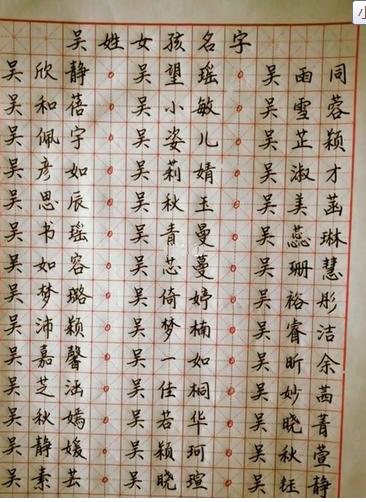 吴姓女孩名字
吴欣静。吴望瑶。吴雨同
吴和蓓。吴小敏。吴雪蓉
吴佩宇。吴姿儿。吴芷颖
吴彦如。吴莉婧。吴淑才
吴思辰。吴秋玉。吴美菡
吴书瑶。吴青曼。吴蕊琳
吴如容。吴芯蔓。吴珊慧
吴梦璐。吴倚婷。吴裕彤
吴沛颖。吴梦楠。吴睿洁
吴嘉馨。吴一如。吴昕余
吴芝涵。吴佳桐。吴妙茜
吴秋嫣。吴若华。吴晓菁
吴静媛。吴颖珂。吴秋萱
吴素芸。吴晓瑄。吴钰静